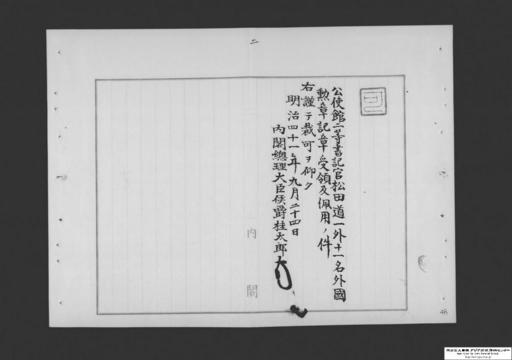 二
可
公使館二等書記官松田道一外十一名外國
勲章記章受領及佩用ノ件
右謹テ裁可ヲ仰ク
明治四十一年九月二十四日
內閣總理大臣侯爵桂太郎
內閣
46